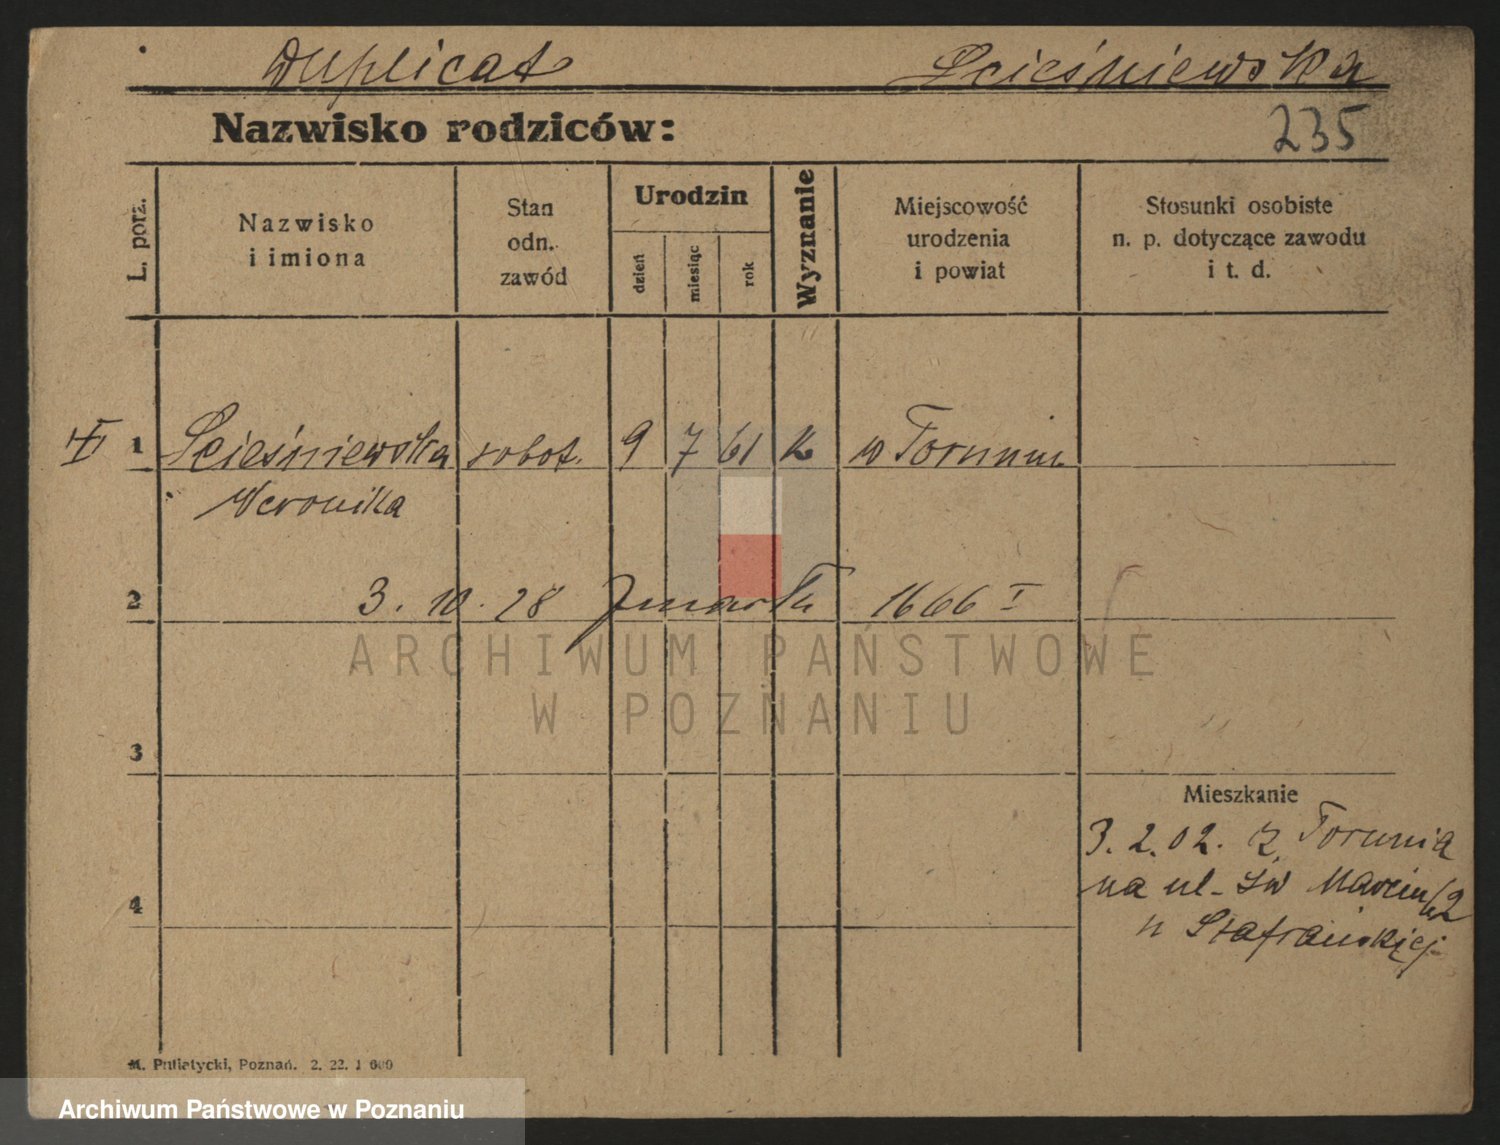 Duplicat Scieśniewska
Nazwisko rodziców:
235
L. porz.
Nazwisko
i imiona
Stan
odn.
zawód
Urodzin
dzień
miesiąc
rok
Wyznanie
Miejscowość
urodzenia
i powiat
Stosunki osobiste
n. p. dotyczące zawodu
i t. d.
1 Scieśniewska robot. 9 7 61 k w Toruniu
Weronika
2 3. 10. 28 Zmarła 1666 I
ARCHIWUM PAŃSTWOWE
W POZNANIU
3
Mieszkanie
3. 2. 02. z Torunia
na ul. Św Marcin
4
u
M. Putiatycki, Poznań. 2. 22. 1 000
Archiwum Państwowe w Poznaniu